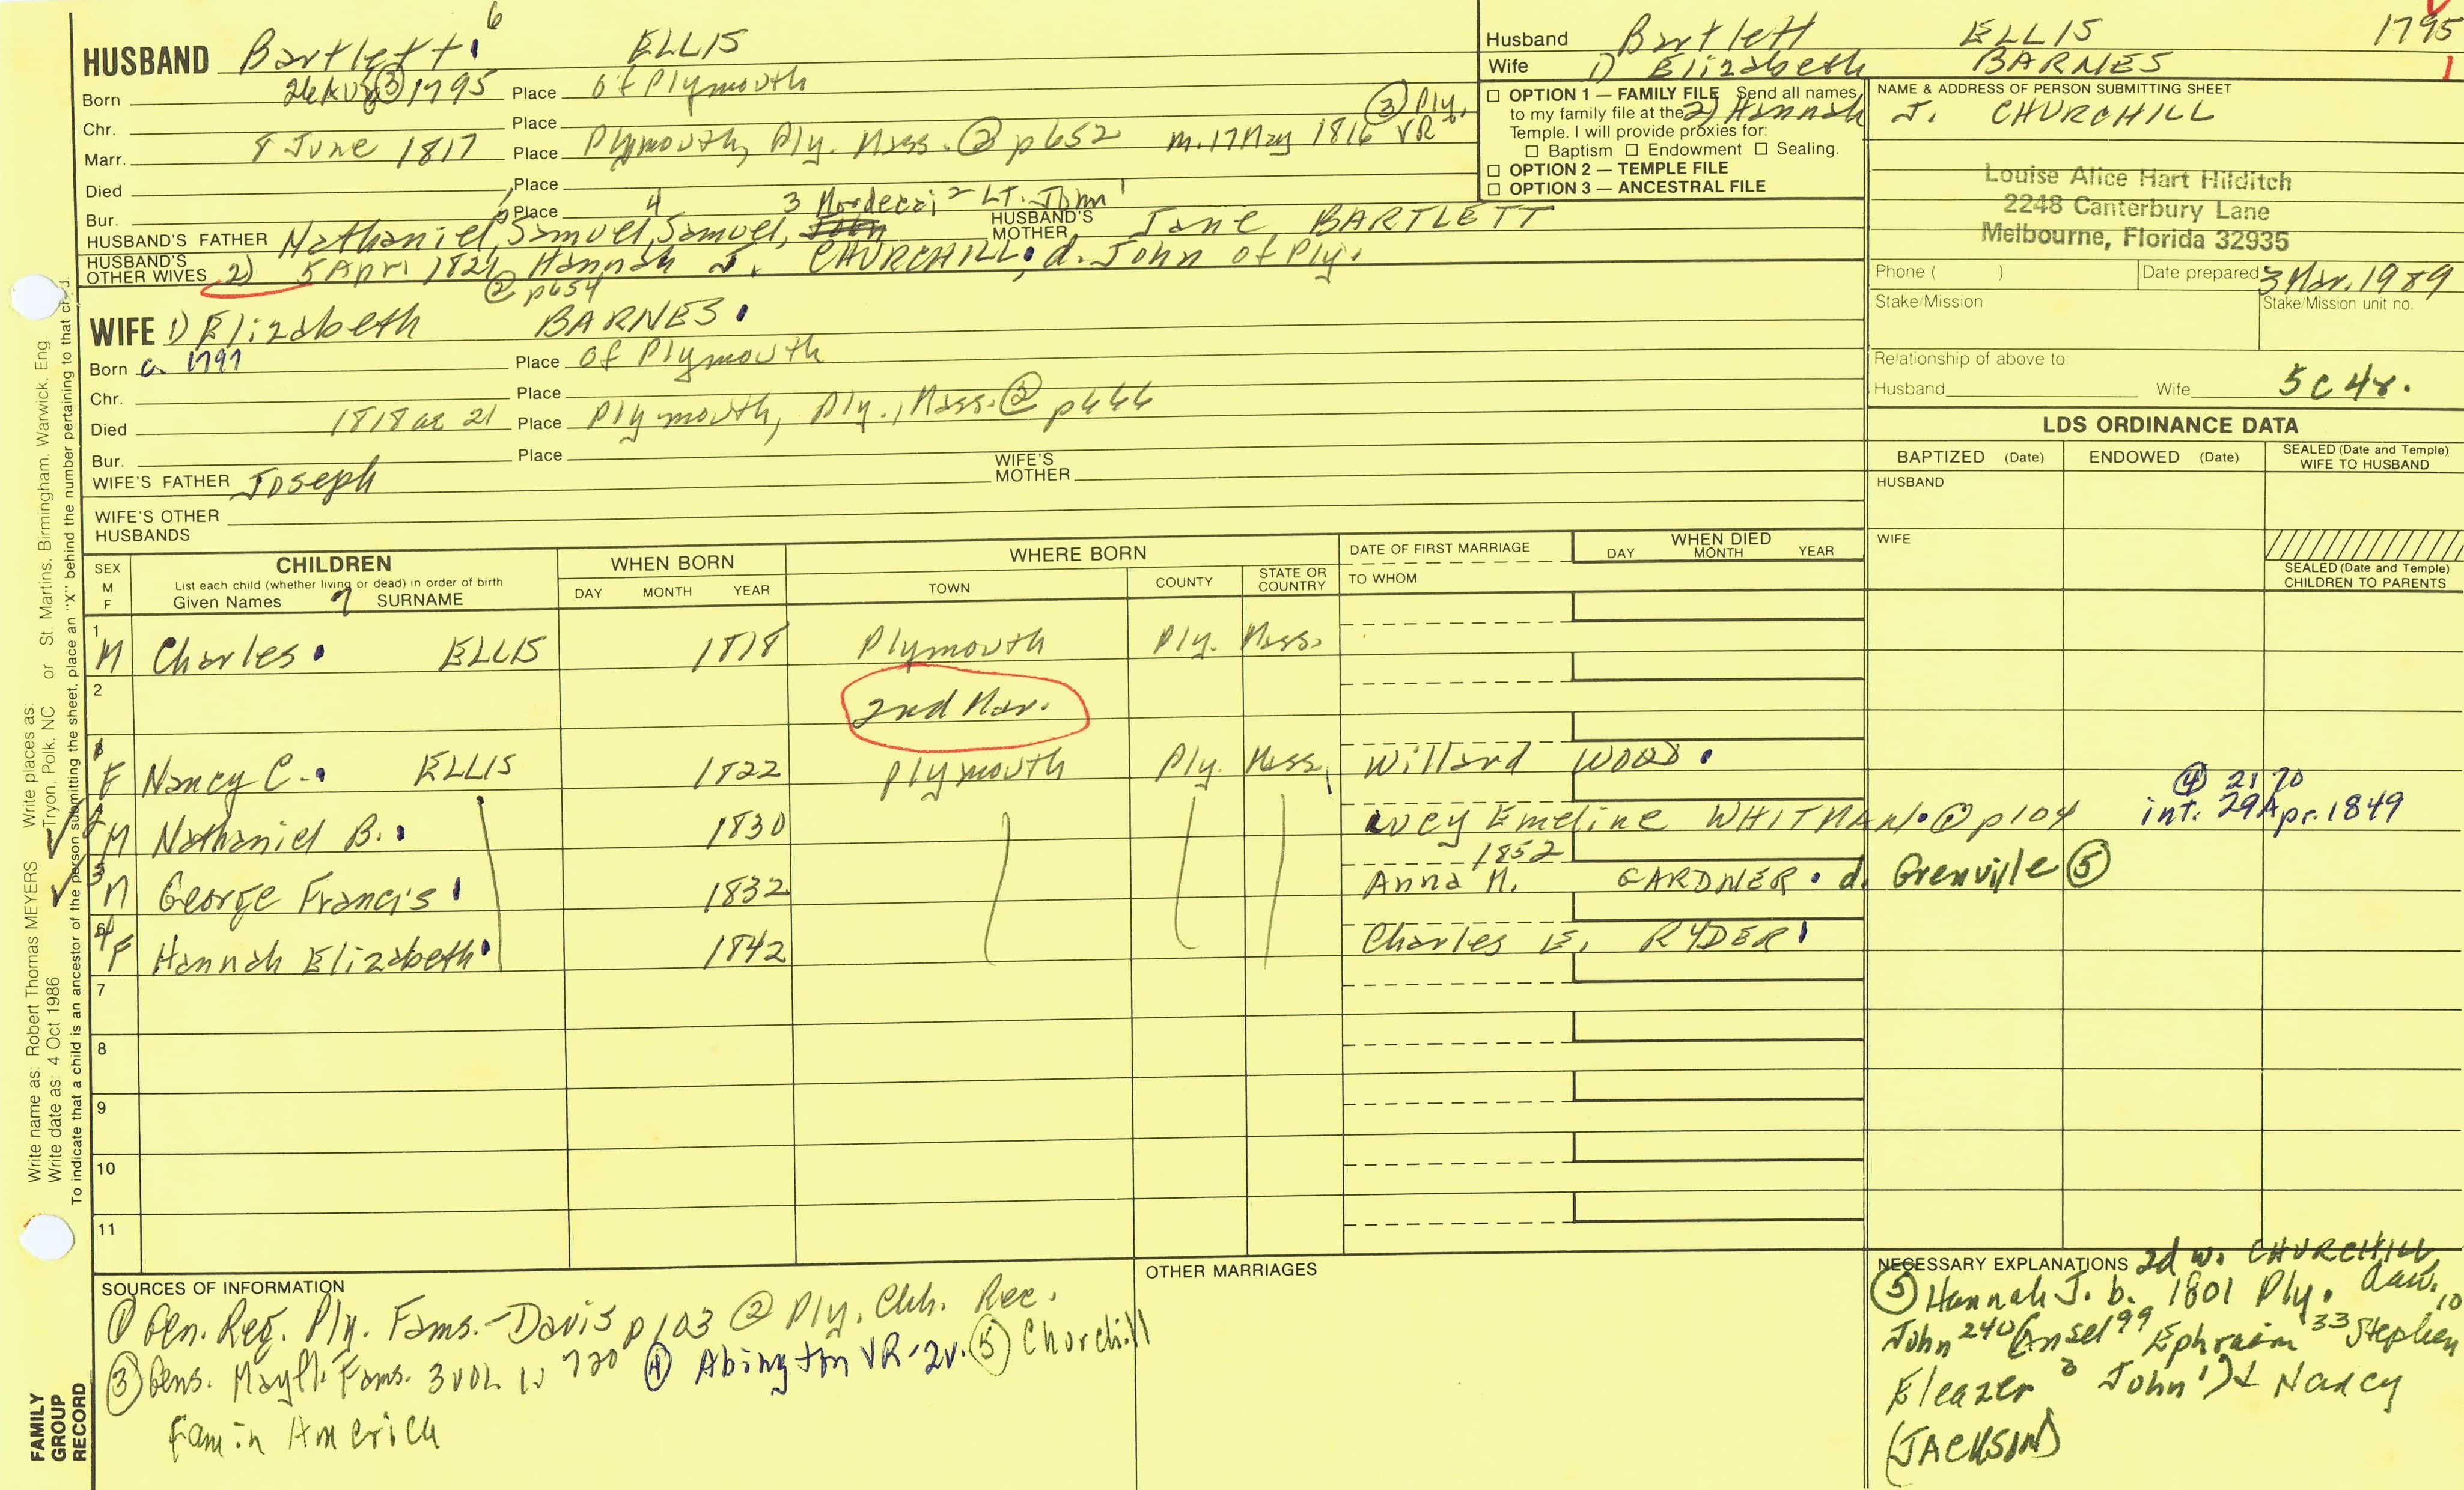 HUSBAND Bartlett 6 ELLIS
Born 26 Aug ③ 1795 Place of Plymouth
Chr. Place
Marr. 8 June 1817 Place Plymouth, Ply. Mass. ② p652 m. 17 May 1816 ③ Ply. VR
Died Place
Bur. Place
HUSBAND'S FATHER Nathaniel 5, Samuel 4, Samuel 3, John Mordecai 2 LT. John 1 HUSBAND'S MOTHER Jane BARTLETT
HUSBAND'S OTHER WIVES 2) 5 April 1821 Hannah J. CHURCHILL, d. John of Ply.
② p654
WIFE 1) Elizabeth BARNES
Born c. 1797 Place of Plymouth
Chr. Place
Died 1818 ae 21 Place Plymouth, Ply., Mass. ② p666
Bur. Place
WIFE'S FATHER Joseph WIFE'S MOTHER
WIFE'S OTHER HUSBANDS
Husband Bartlett ELLIS 1795
Wife 1) Elizabeth BARNES 1
2) Hannah J. CHURCHILL
☐ OPTION 1 — FAMILY FILE Send all names
to my family file at the
Temple. I will provide proxies for:
☐ Baptism ☐ Endowment ☐ Sealing.
☐ OPTION 2 — TEMPLE FILE
☐ OPTION 3 — ANCESTRAL FILE
NAME & ADDRESS OF PERSON SUBMITTING SHEET
Louise Alice Hart Hilditch
2248 Canterbury Lane
Melbourne, Florida 32935
Phone ( ) Date prepared 3 Mar. 1989
Stake/Mission Stake/Mission unit no.
Relationship of above to:
Husband Wife 5C4r.
LDS ORDINANCE DATA
BAPTIZED (Date) ENDOWED (Date) SEALED (Date and Temple) WIFE TO HUSBAND
HUSBAND
WIFE
SEALED (Date and Temple) CHILDREN TO PARENTS
SEX M F CHILDREN WHEN BORN WHERE BORN DATE OF FIRST MARRIAGE WHEN DIED
List each child (whether living or dead) in order of birth
Given Names 7 SURNAME DAY MONTH YEAR TOWN COUNTY STATE OR COUNTRY TO WHOM DAY MONTH YEAR
1 M Charles ELLIS 1818 Plymouth Ply. Mass.
2 2nd Mar.
1 F Nancy C. ELLIS 1822 Plymouth Ply. Mass. Willard WOOD
M Nathaniel B. 1830 Lucy Emeline WHITMAN ① p104 ④ 2170 int. 29 Apr. 1849
3 M George Francis 1832 1852 Anna M. GARDNER d. Grenville ⑤
4 F Hannah Elizabeth 1842 Charles E. RYDER
7
8
9
10
11
SOURCES OF INFORMATION
① Gen. Reg. Ply. Fams. - Davis p103 ② Ply. Chh. Rec.
③ Gens. Mayfl. Fams. 3 VOL 1: 720 ④ Abington VR-2v. ⑤ Churchill
Fam in America
OTHER MARRIAGES
NECESSARY EXPLANATIONS 2d w. CHURCHILL
⑤ Hannah J. b. 1801 Ply. dau.
John 240 (Ansel 99 Ephraim 33 Stephen 10
Eleazer 3 John 1) & Nancy
(JACKSON)
FAMILY GROUP RECORD
Write name as: Robert Thomas MEYERS Write places as: Tryon, Polk, NC or St. Martins, Birmingham, Warwick, Eng
Write date as: 4 Oct 1986
To indicate that a child is an ancestor of the person submitting the sheet, place an "X" behind the number pertaining to that